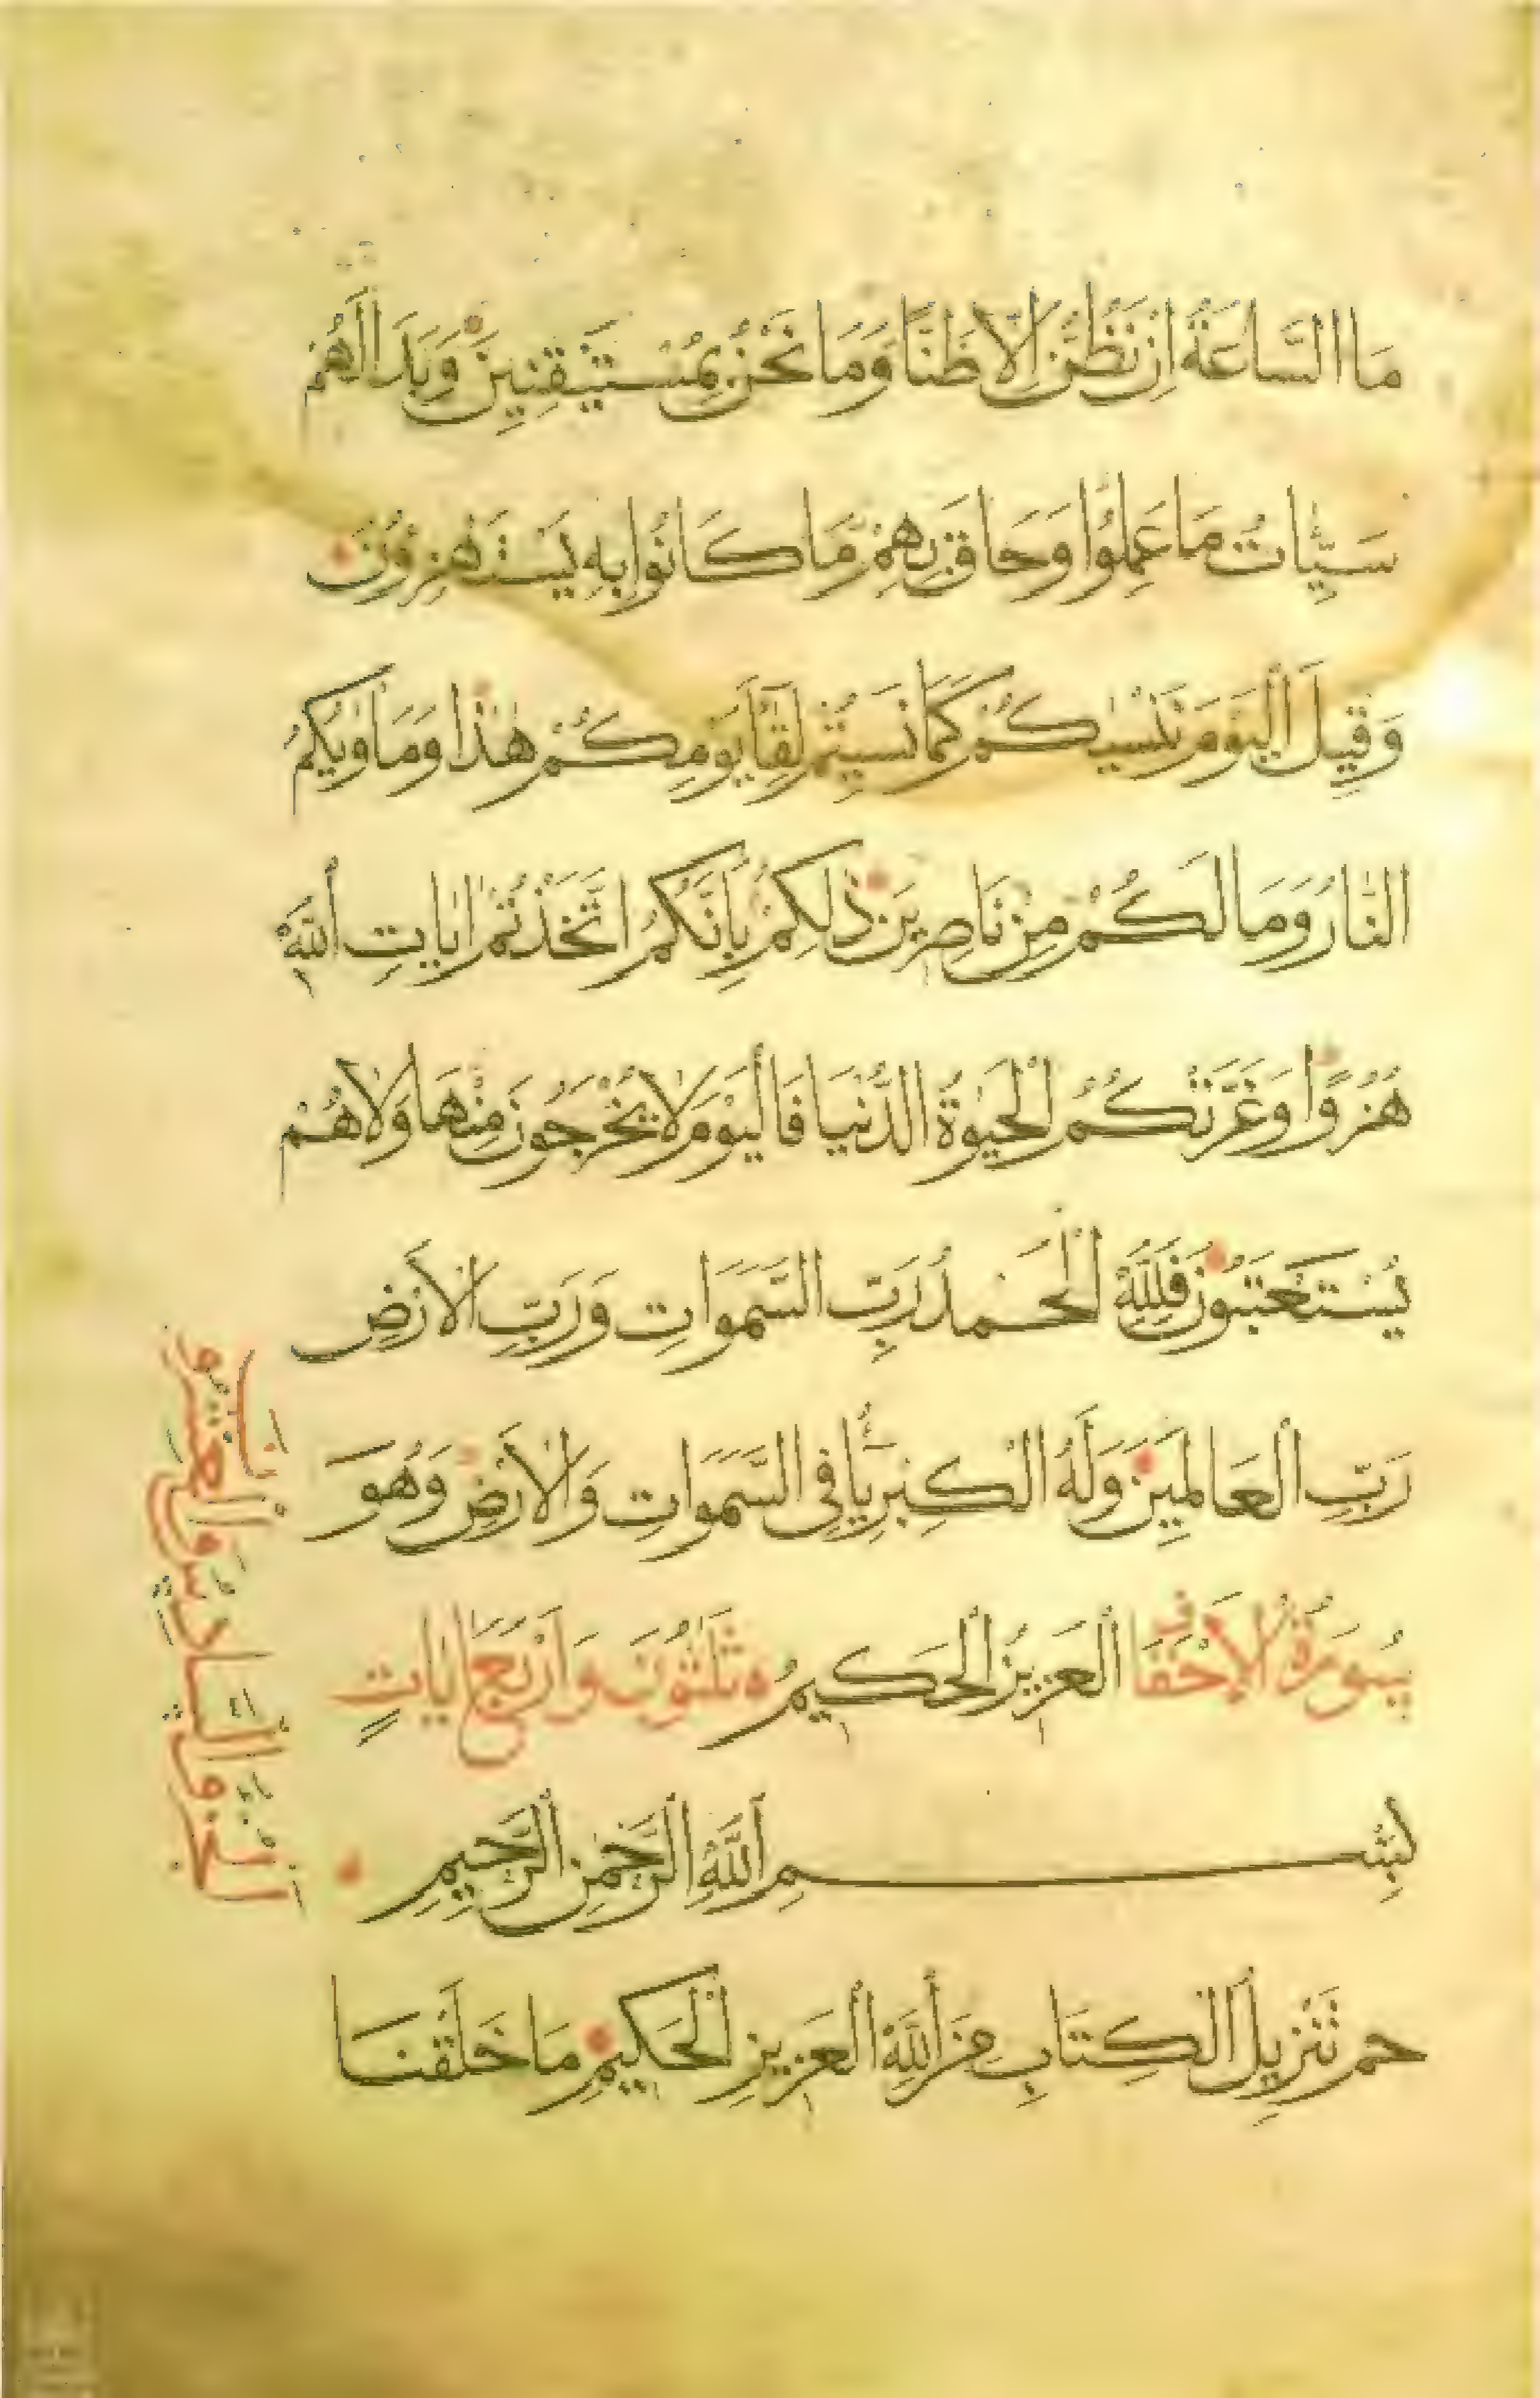 مَا السَّاعَةُ اِنْ نَظُنُّ اِلَّا ظَنًّا وَمَا نَحْنُ بِمُسْتَيْقِنِينَ وَبَدَا لَهُمْ
سَيِّاٰتُ مَا عَمِلُوا وَحَاقَ بِهِمْ مَا كَانُوا بِهِ يَسْتَهْزِؤُنَ
وَقِيلَ الْيَوْمَ نَنْسٰيكُمْ كَمَا نَسِيتُمْ لِقَآءَ يَوْمِكُمْ هٰذَا وَمَاْوٰيكُمُ
النَّارُ وَمَا لَكُمْ مِنْ نَاصِرِينَ ذٰلِكُمْ بِاَنَّكُمُ اتَّخَذْتُمْ اٰيَاتِ اللّٰهِ
هُزُوًا وَغَرَّتْكُمُ الْحَيٰوةُ الدُّنْيَا فَالْيَوْمَ لَا يُخْرَجُونَ مِنْهَا وَلَا هُمْ
يُسْتَعْتَبُونَ فَلِلّٰهِ الْحَمْدُ رَبِّ السَّمَوَاتِ وَرَبِّ الْاَرْضِ
رَبِّ الْعَالَمِينَ وَلَهُ الْكِبْرِيَآءُ فِى السَّمَوَاتِ وَالْاَرْضِ وَهُوَ
سُورَةُ الْاَحْقَافِ الْعَزِيزُ الْحَكِيمُ ثَلٰثُونَ وَاَرْبَعُ اٰيَاتٍ
بِسْمِ اللّٰهِ الرَّحْمٰنِ الرَّحِيمِ
حم تَنْزِيلُ الْكِتَابِ مِنَ اللّٰهِ الْعَزِيزِ الْحَكِيمِ مَا خَلَقْنَا
الجزو السادس والعشرو
ن